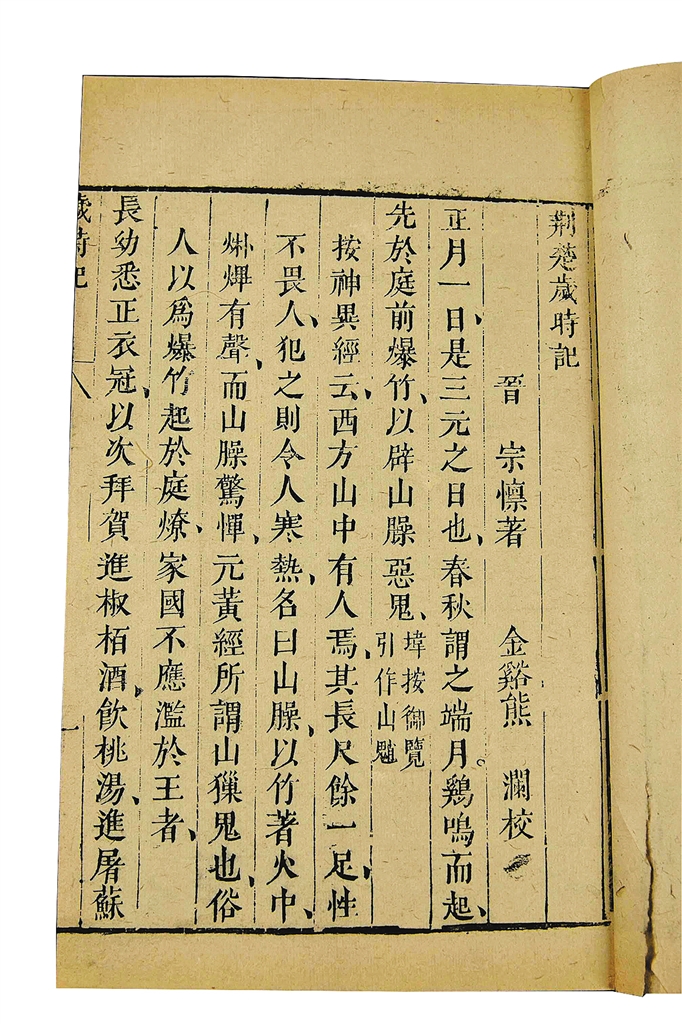 荆楚歲時記
晉　宗懍著　金谿熊　瀾校
正月一日、是三元之日也、春秋謂之端月。鷄鳴而起、
先於庭前爆竹、以辟山臊惡鬼、墇按御覽引作山魈
按神異經云、西方山中有人焉、其長尺餘一足、性
不畏人、犯之則令人寒熱、名曰山臊、以竹著火中、
烞熚有聲、而山臊驚憚、元黃經所謂山𤢖鬼也、俗
人以爲爆竹起於庭燎、家國不應濫於王者、
長幼悉正衣冠、以次拜賀進椒栢酒、飲桃湯、進屠蘇
歲時記
一